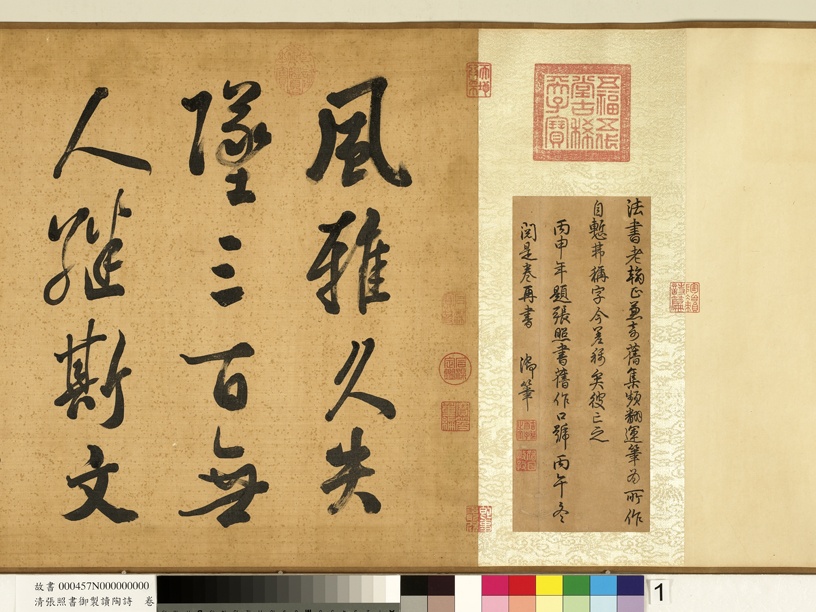 五福五代
堂古稀
天子寶
法書老翰正兼奇舊集頻翻運筆為所作
自慙茀稱字今差稱矣彼亡之
丙申年題張照書舊作口號丙午冬
閱是卷再書 御筆
風雅久失
墜三百無
人繼斯文
故書 000457N000000000
清張照書御製讀陶詩 卷
1